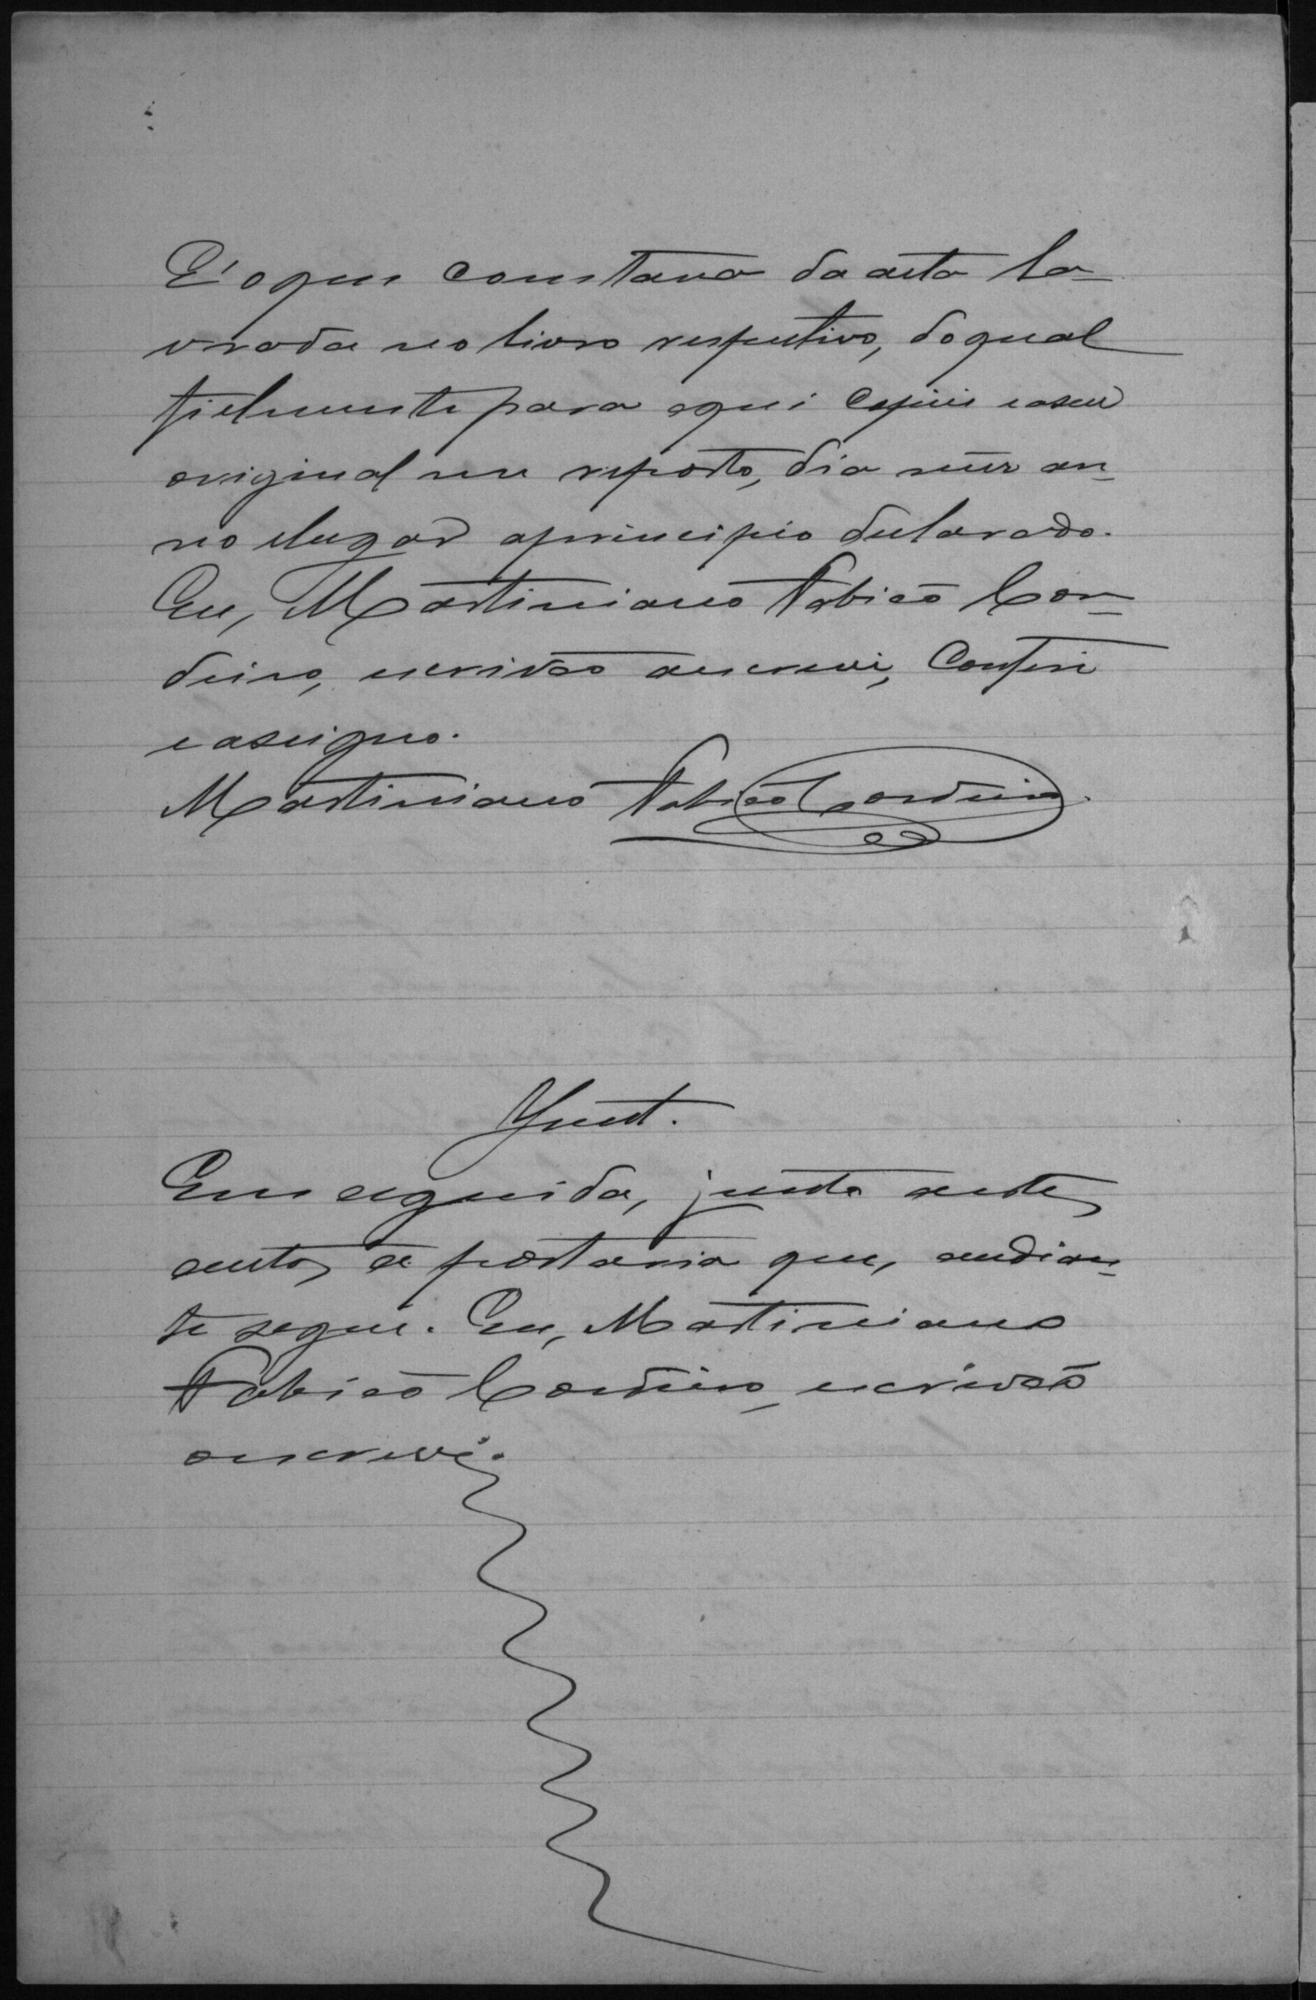 E' o que constava da acta la-
vrada no livro respectivo, do qual
fielmente para aqui copiei e a seu
original me reporto, dia mez an-
no e lugar a principio declarado.
Eu, Martiniano Fabião Cor-
deiro, escrivão a escrevi, conferi
e assigno.
Martiniano Fabião Cordeiro.
Junt.
Em seguida, junto a estes
autos a portaria que, a edian-
te segue. Eu, Martiniano
Fabião Cordeiro, escrivão
o escrevi.